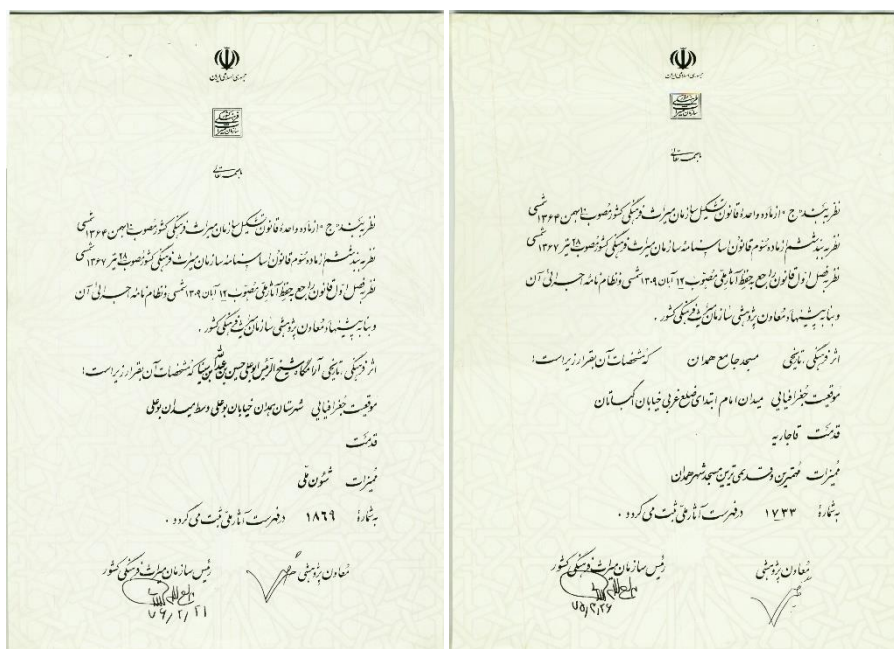 جمهوری اسلامی ایران
سازمان میراث فرهنگی
باسمه تعالی
نظر به بند «ج» از ماده واحدهٔ قانون تشکیل سازمان میراث فرهنگی کشور مصوب ۱۰ بهمن ۱۳۶۴ شمسی
نظر به بند ششم از ماده سوم قانون اساسنامه سازمان میراث فرهنگی کشور مصوب ۲۸ تیر ۱۳۶۷ شمسی
نظر به فصل اول قانون راجع به حفظ آثار ملی مصوب ۱۲ آبان ۱۳۰۹ شمسی و نظامنامه اجرائی آن
و بنا به پیشنهاد معاون پژوهشی سازمان میراث فرهنگی کشور .
اثر فرهنگی ، تاریخی آرامگاه شیخ الرئیس ابوعلی حسین بن عبدالله بن سینا که مشخصات آن بقرار زیر است:
موقعیت جغرافیایی شهرستان همدان خیابان بوعلی وسط میدان بوعلی
قدمت
ممیزات شئون ملی
به شمارهٔ ۱۸۶۹ در فهرست آثار ملی ثبت می گردد .
معاون پژوهشی رئیس سازمان میراث فرهنگی کشور
۷۶/۲/۲۱
جمهوری اسلامی ایران
سازمان میراث فرهنگی
باسمه تعالی
نظر به بند «ج» از ماده واحدهٔ قانون تشکیل سازمان میراث فرهنگی کشور مصوب ۱۰ بهمن ۱۳۶۴ شمسی
نظر به بند ششم از ماده سوم قانون اساسنامه سازمان میراث فرهنگی کشور مصوب ۲۸ تیر ۱۳۶۷ شمسی
نظر به فصل اول قانون راجع به حفظ آثار ملی مصوب ۱۲ آبان ۱۳۰۹ شمسی و نظامنامه اجرائی آن
و بنا به پیشنهاد معاون پژوهشی سازمان میراث فرهنگی کشور .
اثر فرهنگی ، تاریخی مسجد جامع همدان که مشخصات آن بقرار زیر است:
موقعیت جغرافیایی میدان امام ابتدای ضلع غربی خیابان اکباتان
قدمت قاجاریه
ممیزات مهمترین و قدیمی ترین مسجد شهر همدان
به شمارهٔ ۱۷۳۳ در فهرست آثار ملی ثبت می گردد .
معاون پژوهشی رئیس سازمان میراث فرهنگی کشور
۷۵/۲/۲۶